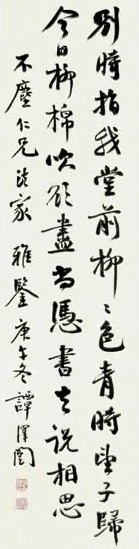 別時指我堂前柳柳色青時望子歸
今日柳棉吹欲盡尚憑書去說相思
不塵仁兄法家雅鑒庚午冬譚澤闓